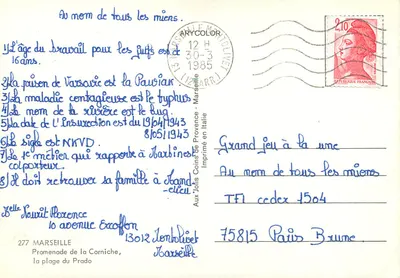 Au nom de tous les miens.
1) L'âge du travail pour les juifs est de
16 ans.
2) La prison de Varsovie est la Pawiak
3) La maladie contagieuse est le typhus
4) Le nom de la rivière est le bug.
5) La date de l'Insurrection est du 19/04/1943
8/05/1943
6) Le sigle est NKVD.
7) Le 1er métier qui rapporte à Martin est
colporteur.
8) Il doit retrouver sa famille à
Delle Nourit Florence
10 avenue
13012
Marseille
277 MARSEILLE
Promenade de la Corniche,
la plage du Prado
ARYCOLOR
Aux Jolis Coins de Provence - Marseille
Imprimé en Italie
12 H
30-3
1985
2,10
Grand jeu à la une
Au nom de tous les miens
TF1 cedex 1504
75815 Paris Brune